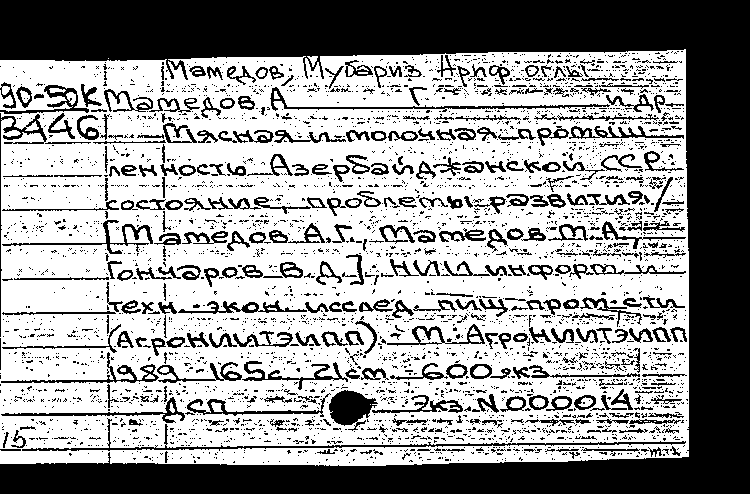 Мамедов, Мубариз Ариф оглы
90-50К Мамедов, А Г. и др
3446 Мясная и молочная промыш-
ленность Азербайджанской ССР:
состояние, проблемы развития /
[Мамедов А.Г., Мамедов М.А.,
Гончаров В.Д.]; НИИ информ. и
техн.-экон. исслед. пищ. пром-сти
(АгроНИИТЭИПП). - М.: АгроНИИТЭИПП
1989. - 165с.; 21см. - 600 экз
ДСП Экз. N 000014
15